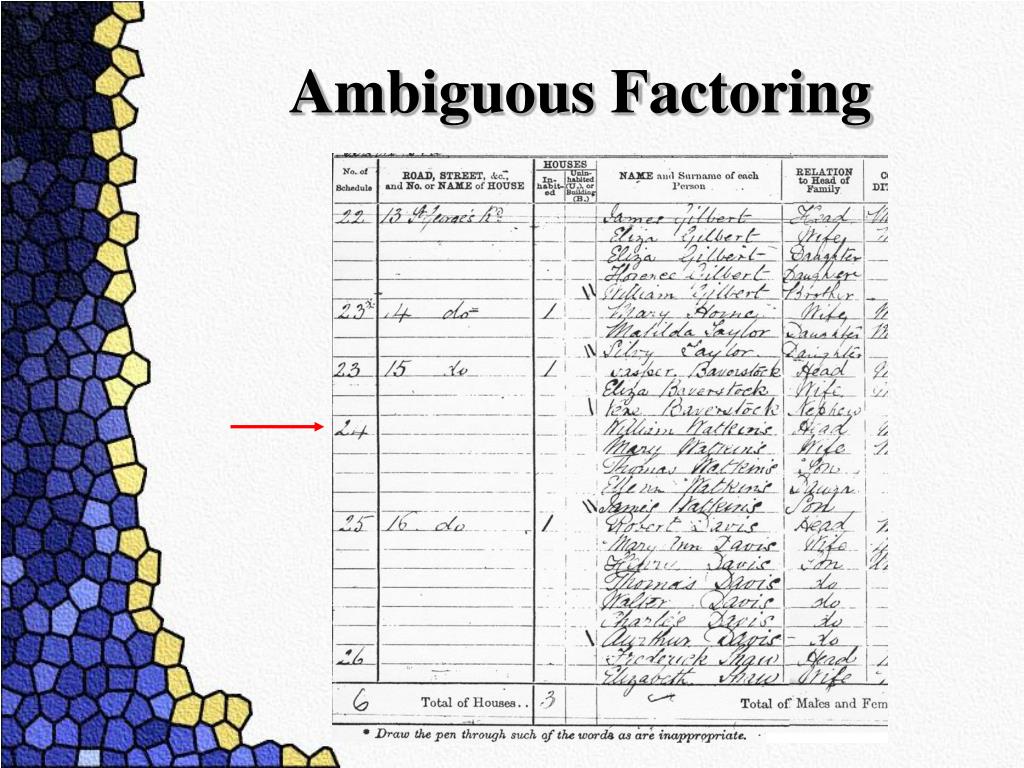 Ambiguous Factoring
No. of Schedule ROAD, STREET, &c., and No. or NAME of HOUSE HOUSES In-habit-ed Unin-habited (U.), or Building (B.) NAME and Surname of each Person RELATION to Head of Family
22 13 St George's Rd James Gilbert Head
Eliza Gilbert Wife
Eliza Gilbert Daughter
Florence Gilbert Daughter
William Gilbert Brother
23 14 do 1 Mary Wife
Matilda Taylor Daughter
Taylor Daughter
23 15 do 1 Baverstock Head
Eliza Baverstock Wife
Baverstock Nephew
24 William Watkins Head
Mary Watkins Wife
Thomas Watkins Son
Ellenn Watkins
James Watkins Son
25 16 do 1 Robert Davis Head
Mary Ann Davis Wife
Henry Davis Son
Thomas Davis do
Walter Davis do
Charlie Davis do
Aurthur Davis do
26 Frederick Shaw Head
Elizabeth Shaw Wife
6 Total of Houses.. 3 Total of Males and Fem
* Draw the pen through such of the words as are inappropriate.